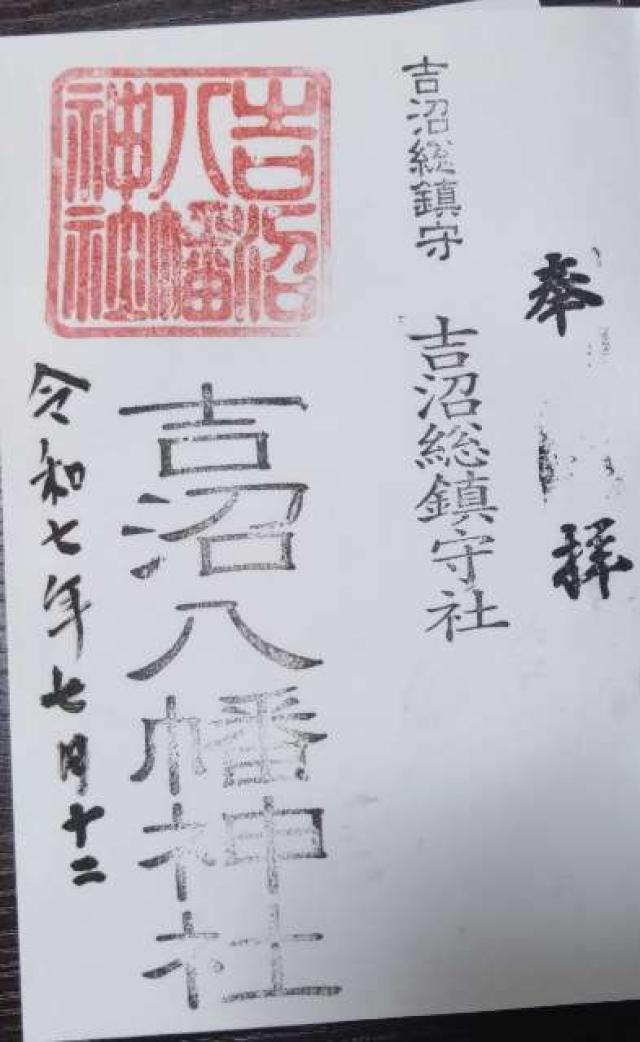 奉拝
吉沼総鎮守
吉沼総鎮守社
吉沼八幡神社
吉沼八幡神社
令和七年七月十二